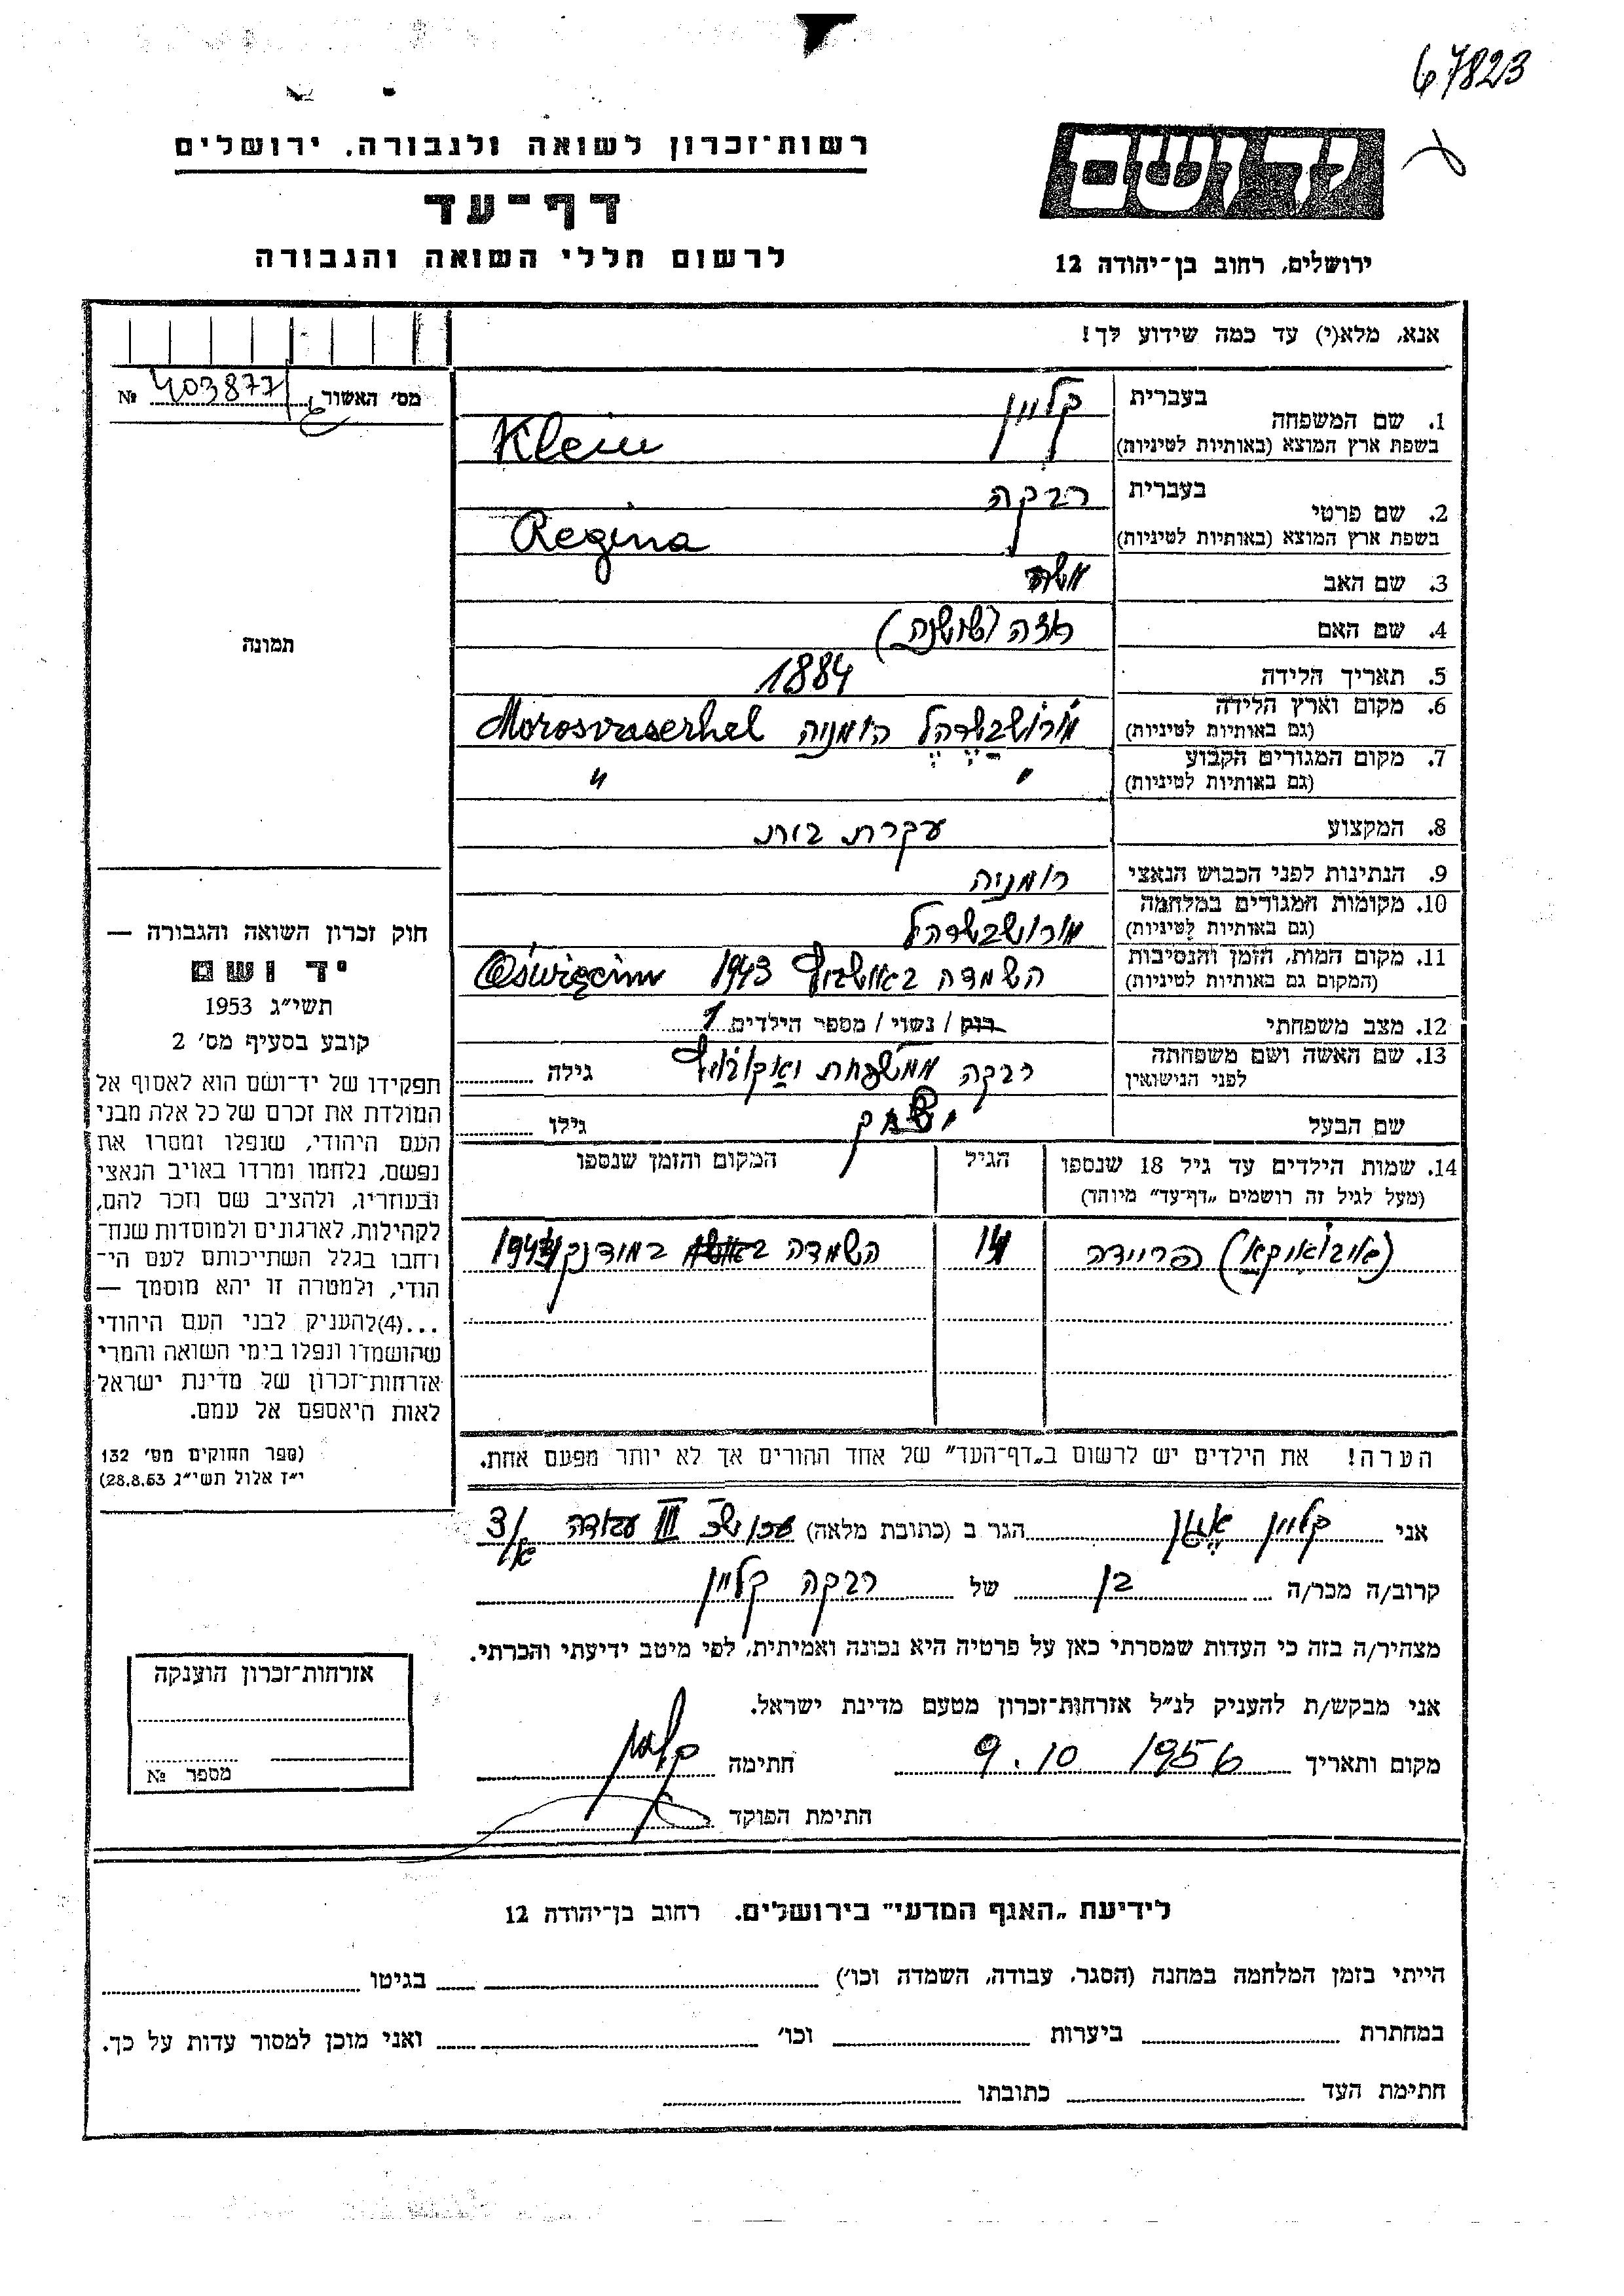 67823
רשות־זכרון לשואה ולגבורה. ירושלים
דף־עד
לרשום חללי השואה והגבורה
יד ושם
ירושלים, רחוב בן־יהודה 12
אנא, מלא(י) עד כמה שידוע לך!
מס׳ האשור 403877 №
1. שם המשפחה בעברית קליין
בשפת ארץ המוצא (באותיות לטיניות) Klein
2. שם פרטי בעברית רבקה
בשפת ארץ המוצא (באותיות לטיניות) Regina
3. שם האב משה
4. שם האם (שושנה)
5. תאריך הלידה 1884
6. מקום וארץ הלידה (גם באותיות לטיניות) רומניה Morosvaserhel
7. מקום המגורים הקבוע (גם באותיות לטיניות) " "
8. המקצוע עקרת בית
9. הנתינות לפני הכבוש הנאצי רומניה
10. מקומות המגורים במלחמה (גם באותיות לטיניות)
11. מקום המות, הזמן והנסיבות (המקום גם באותיות לטיניות) השמדה באושביץ 1943 Oświęcim
12. מצב משפחתי רוק / נשוי / מספר הילדים 1
13. שם האשה ושם משפחתה לפני הנישואין רבקה ממשפחת גילה
שם הבעל גילו
14. שמות הילדים עד גיל 18 שנספו הגיל המקום והזמן שנספו
(מעל לגיל זה רושמים „דף־עד״ מיוחד)
פריידה 14 השמדה
הערה! את הילדים יש לרשום ב„דף־העד״ של אחד ההורים אך לא יותר מפעם אחת.
תמונה
חוק זכרון השואה והגבורה —
יד ושם
תשי״ג 1953
קובע בסעיף מס׳ 2
תפקידו של יד־ושם הוא לאסוף אל
המולדת את זכרם של כל אלה מבני
העם היהודי, שנפלו ומסרו את
נפשם, נלחמו ומרדו באויב הנאצי
ובעוזריו, ולהציב שם וזכר להם,
לקהילות, לארגונים ולמוסדות שנח־
רחבו בגלל השתייכותם לעם הי־
הודי, ולמטרה זו יהא מוסמך —
...(4)להעניק לבני העם היהודי
שהושמדו ונפלו בימי השואה והמרי
אזרחות־זכרון של מדינת ישראל
לאות היאספם אל עמם.
(ספר החוקים מס׳ 132
י״ז אלול תשי״ג 28.8.53)
אני קליין הגר ב (כתובת מלאה) III עבודה 3/
קרוב/ה מכר/ה בן של רבקה קליין
מצהיר/ה בזה כי העדות שמסרתי כאן על פרטיה היא נכונה ואמיתית, לפי מיטב ידיעתי והכרתי.
אני מבקש/ת להעניק לנ״ל אזרחות־זכרון מטעם מדינת ישראל.
מקום ותאריך 9.10 1956 חתימה קליין
חתימת הפוקד
אזרחות־זכרון הוענקה
מספר №
לידיעת „האגף המדעי״ בירושלים. רחוב בן־יהודה 12
הייתי בזמן המלחמה במחנה (הסגר, עבודה, השמדה וכו׳) בגיטו
במחתרת ביערות וכו׳ ואני מוכן למסור עדות על כך.
חתימת העד כתובתו